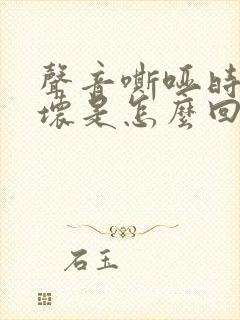 聲音嘶啞時
壞是怎麼回
石玉